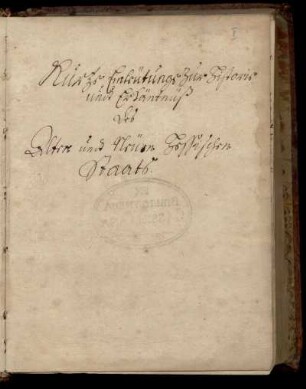 Kurtze Einleitung zur Historie
und Erkäntnuß
des
Alten und Neuen Hessischen
Staats.